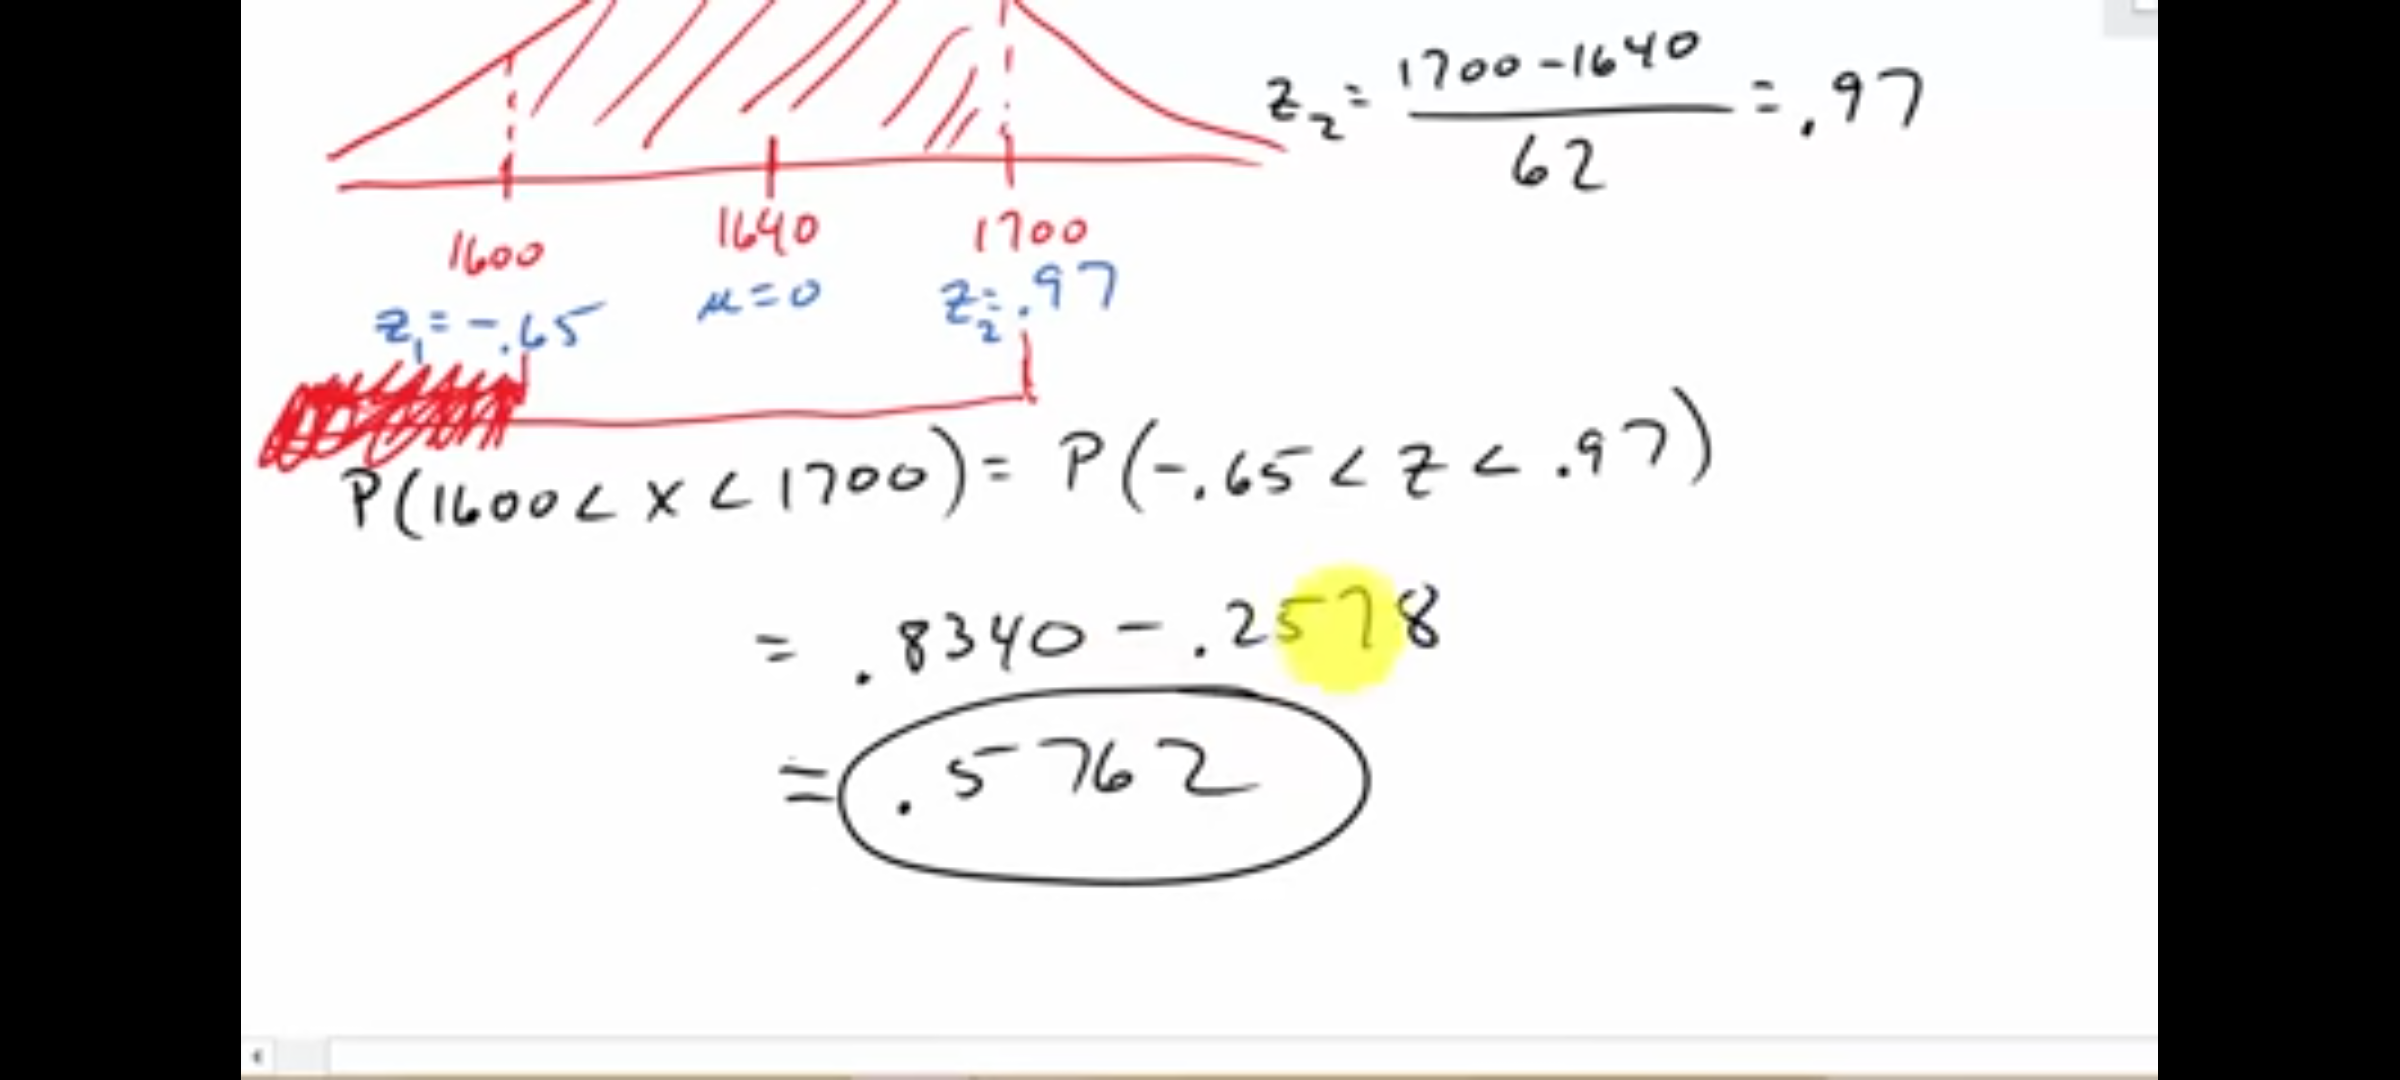 z₂ = (1700 - 1640) / 62 = .97
1600 1640 1700
z₁ = -.65 μ = 0 z₂ = .97
P(1600 < x < 1700) = P(-.65 < z < .97)
= .8340 - .2578
= .5762